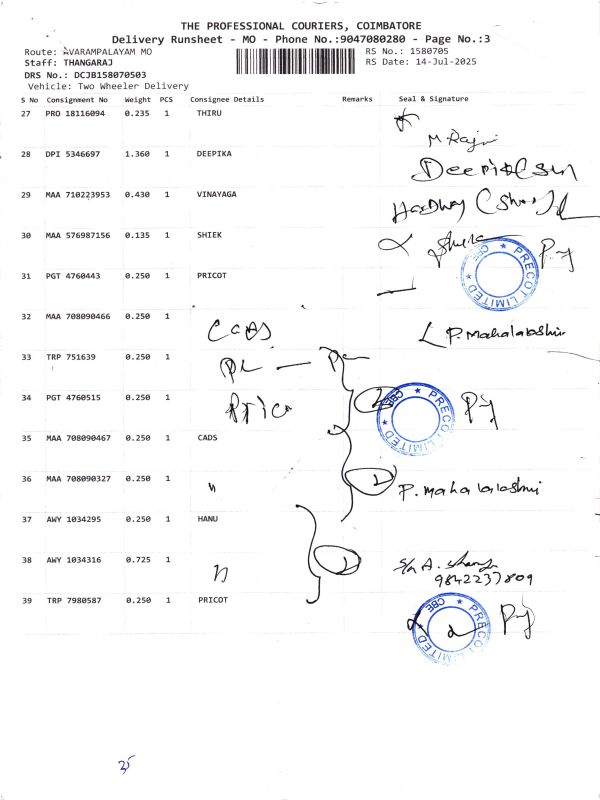 THE PROFESSIONAL COURIERS, COIMBATORE
Delivery Runsheet - MO - Phone No.:9047080280 - Page No.:3
Route: AVARAMPALAYAM MO RS No.: 1580705
Staff: THANGARAJ RS Date: 14-Jul-2025
DRS No.: DCJB158070503
Vehicle: Two Wheeler Delivery
S No Consignment No Weight PCS Consignee Details Remarks Seal & Signature
27 PRO 18116094 0.235 1 THIRU
28 DPI 5346697 1.360 1 DEEPIKA
29 MAA 710223953 0.430 1 VINAYAGA
30 MAA 576987156 0.135 1 SHIEK
PRECOT LIMITED ★ CBE ★
31 PGT 4760443 0.250 1 PRICOT
32 MAA 708090466 0.250 1 CADS P. Mahalakshmi
33 TRP 751639 0.250 1
34 PGT 4760515 0.250 1 2 PRECOT LIMITED ★ CBE ★
35 MAA 708090467 0.250 1 CADS
36 MAA 708090327 0.250 1 " 2 P. Mahalakshmi
37 AWY 1034295 0.250 1 HANU
38 AWY 1034316 0.725 1 " 2
9842237809
39 TRP 7980587 0.250 1 PRICOT PRECOT LIMITED ★ CBE ★
35